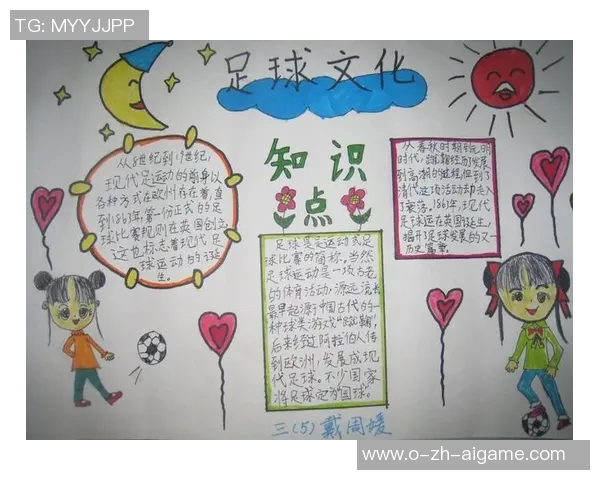 TG: MYYJJPP
足球文化
知识
点
从8世纪到19世纪,
现代足运动的前身以
各种方式在欧州存在着,直
到1863年,第一份正式的足
球比赛规则在英国创立,
这也标志着现代足
球运动的诞
生。
足球是足运动式足
球比赛的简称。当然
足球运动是一项古老
的体育活动,源远流长
最早起源于中国古代的一
种球类游戏“蹴鞠”,
后来经过阿拉伯人传
到欧洲,发展成现
代足球。不少国家
将足球定为国球。
从春秋时期到明
时代,蹴鞠经历发展
到高潮的进程但到了
清代这项活动却走入
了衰落。1863年,现代
足球运在英国诞生,
揭开了足球发展的又一
历史篇章。
三(5)戴周媛
www.o-zh-aigame.com